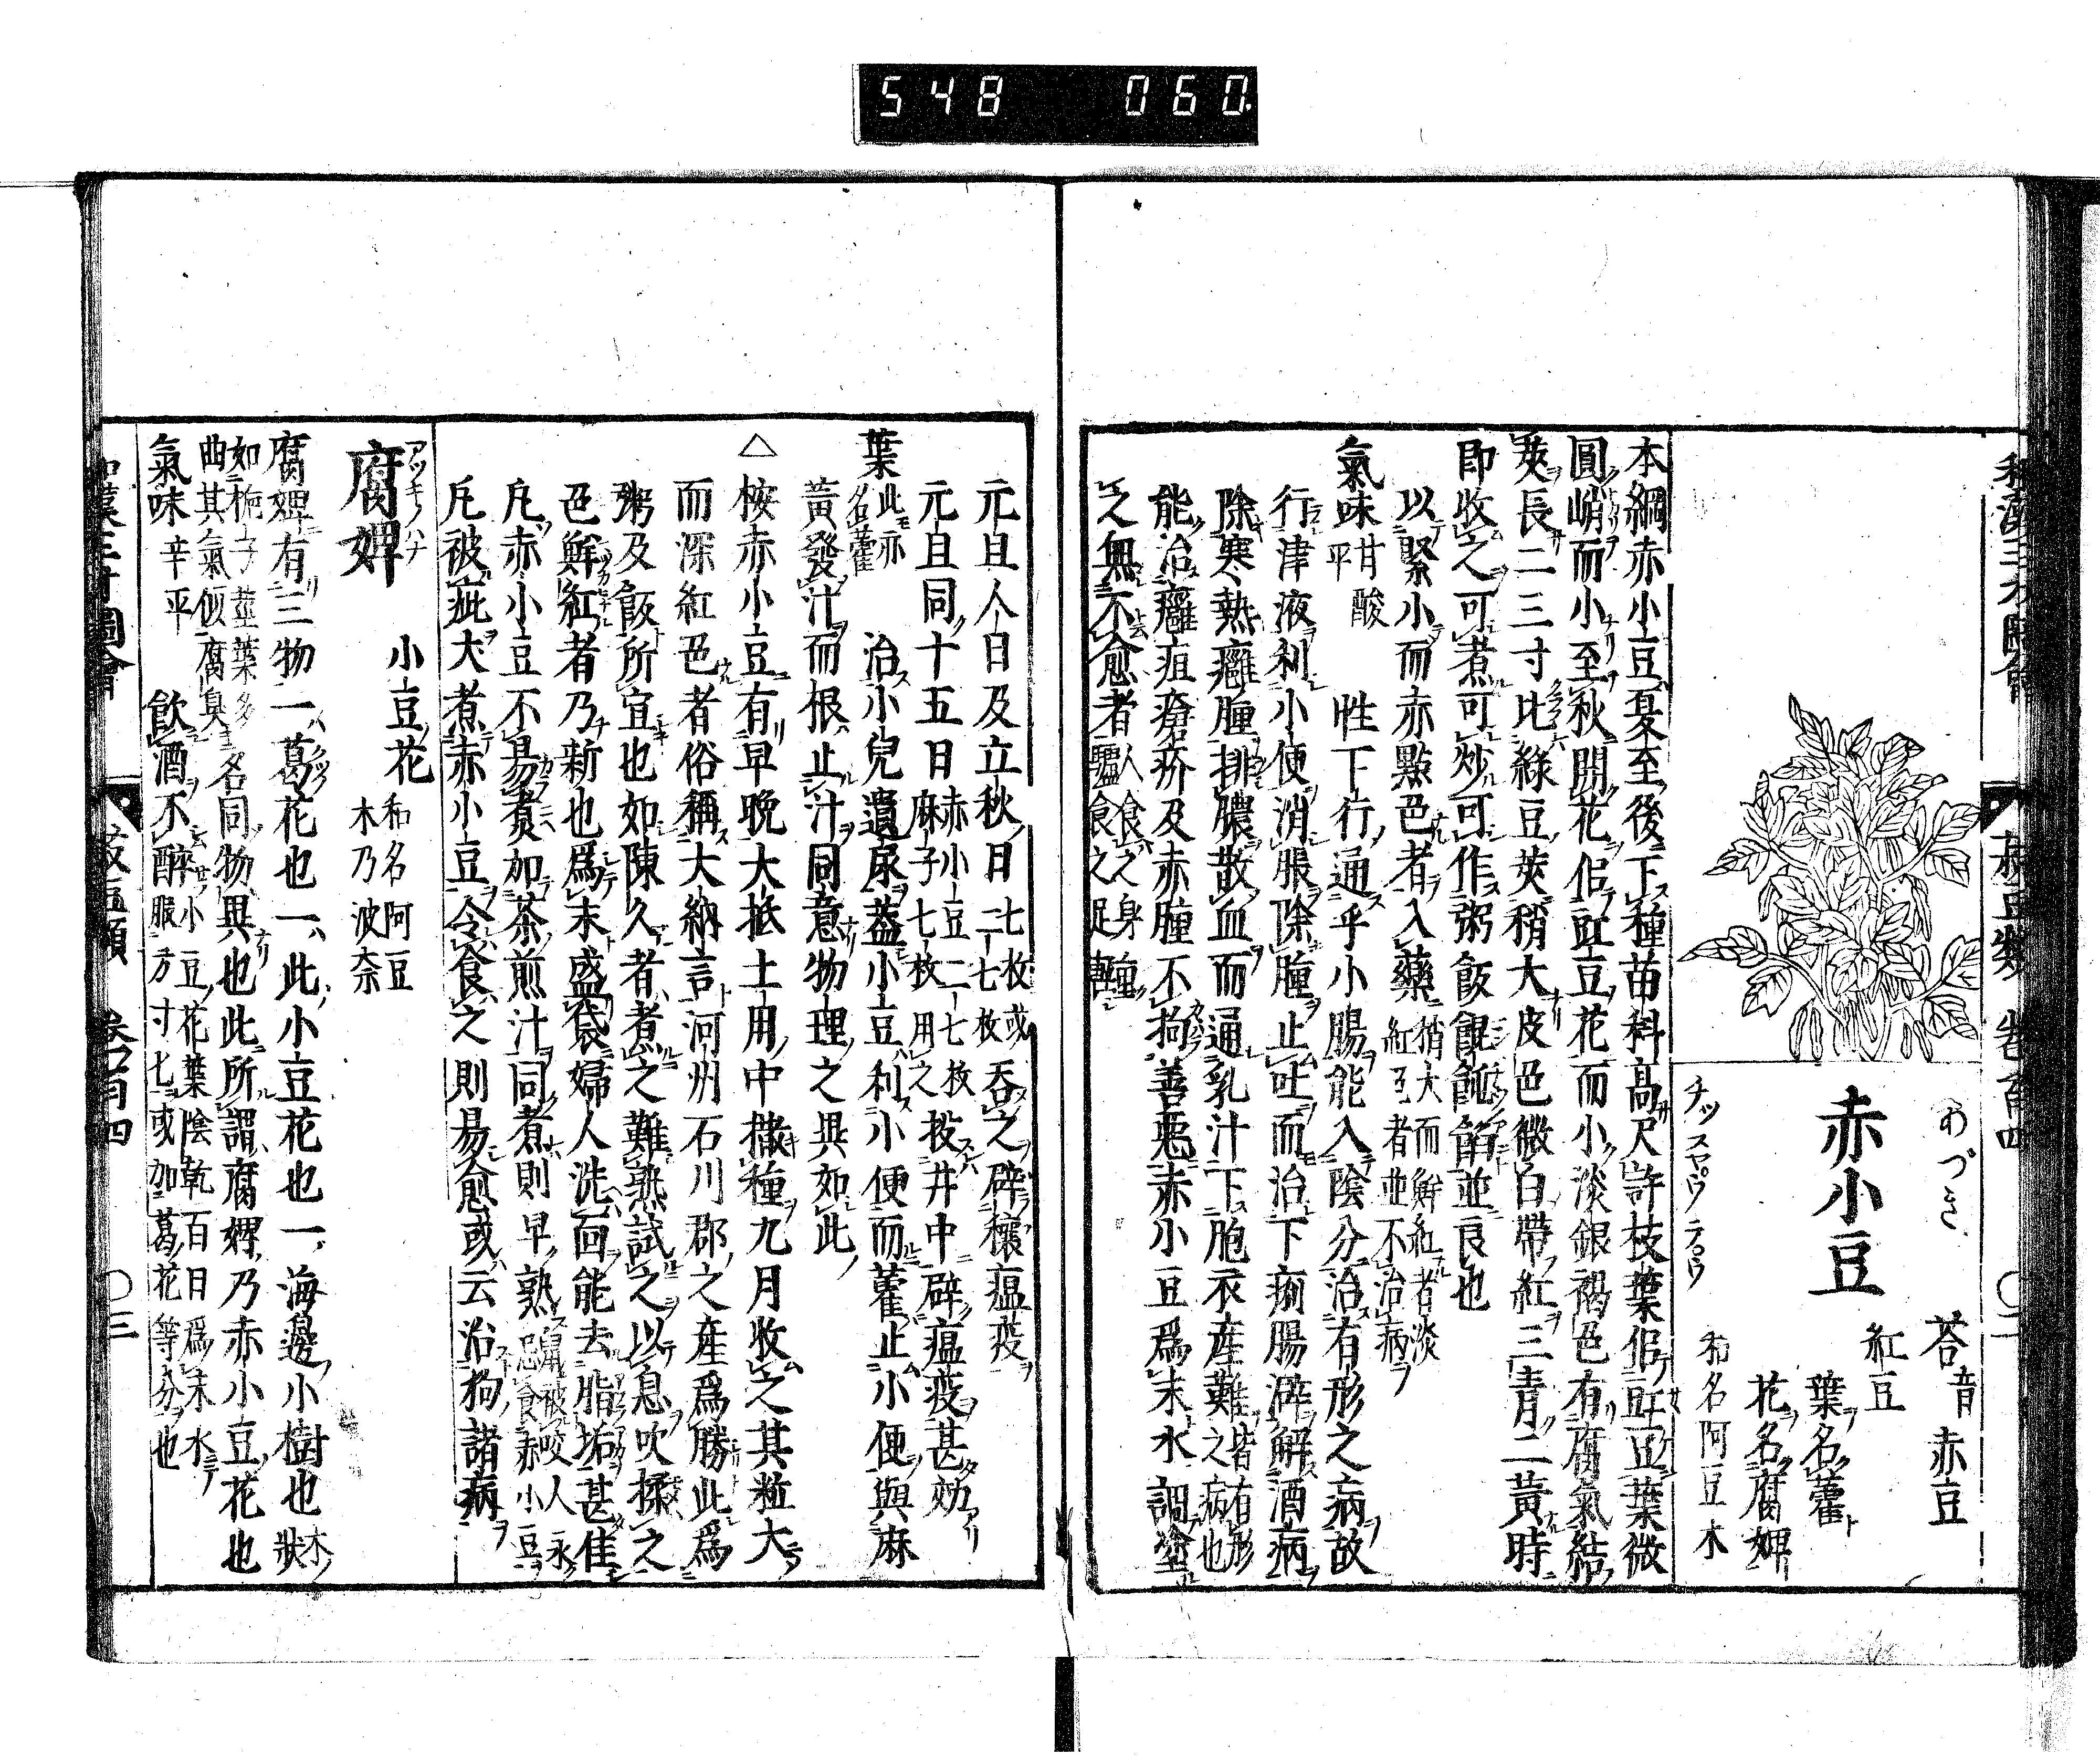 548 060
和漢三才圖會 菽豆類 卷百四
あづき
赤小豆
チツ スヤウ テ゚ウ
荅音 赤豆
紅豆
葉名藿
花名腐婢
和名阿豆木
本綱赤小豆夏至後下種苗科高尺許枝葉似豇豆葉微
圓峭而小至秋開花似豇豆花而小淡銀褐色有腐氣結
莢長二三寸比綠豆莢稍大皮色微白帶紅三青二黃時
即收之可煮可炒可作粥飯餛飩餡並良也
以緊小而赤黯色者入藥稍大而鮮紅者淡紅色者並不治病
氣味甘酸平 性下行通乎小腸能入陰分治有形之病故
行津液利小便消脹除腫止吐而治下痢腸澼解酒病
除寒熱癰腫排膿散血而通乳汁下胞衣產難之病皆有形也
能治癰疽瘡疥及赤腫不拘善惡赤小豆爲末水調塗
之無不愈者人食之身重驢食之足輕
元旦人日及立秋日七枚或二七枚吞之辟穰瘟疫
元旦同十五日赤小豆二七枚麻子七枚用之投井中辟瘟疫甚効
葉此亦名藿 治小兒遺尿蓋小豆利小便而藿止小便與麻
黃發汗而根止汗同意物理之異如此
△ 桉赤小豆有早晚大抵土用中撒種九月收之其粒大
而深紅色者俗稱大納言河州石川郡之產爲勝此爲
粥及飯所宜也如陳久者煮之難熟試之以息吹揉之
色鮮紅者乃新也爲末盛袋婦人洗面能去脂垢甚佳
凡赤小豆不易煮加茶煎汁同煮則早熟鼠被咬人永忌食赤小豆
凡被疵犬煮赤小豆令食之則易愈或云治狗諸病
アツキノハナ
腐婢
小豆花
和名阿豆木乃波奈
腐婢有三物一葛花也一此小豆花也一海邊小樹也木狀
如梔子莖葉多曲其氣似腐臭名同物異也此所謂腐婢乃赤小豆花也
氣味辛平 飲酒不醉小豆花葉陰乾百日爲末水服方寸匕或加葛花等分也
和漢三才圖會 菽豆類 卷百四 〇三